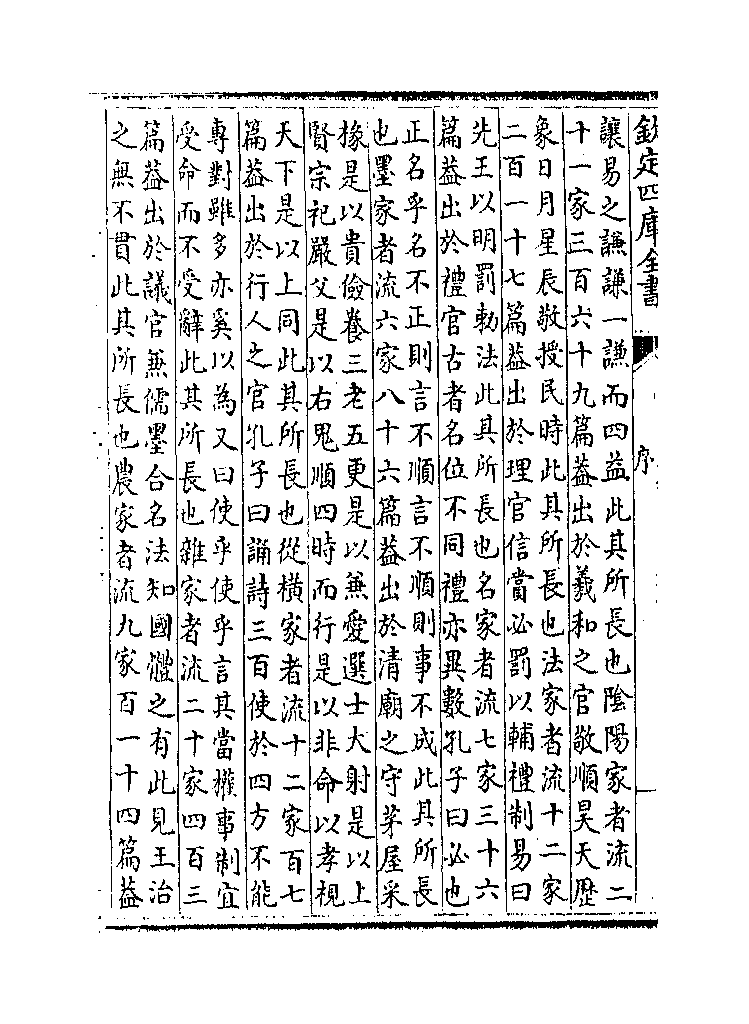 欽定四庫全書
序
讓易之謙謙一謙而四益此其所長也陰陽家者流二
十一家三百六十九篇葢出於羲和之官敬順昊天歴
象日月星辰敬授民時此其所長也法家者流十二家
二百一十七篇葢出於理官信賞必罰以輔禮制易曰
先王以明罰勅法此其所長也名家者流七家三十六
篇葢出於禮官古者名位不同禮亦異數孔子曰必也
正名乎名不正則言不順言不順則事不成此其所長
也墨家者流六家八十六篇葢出於清廟之守茅屋采
椽是以貴儉養三老五更是以兼愛選士大射是以上
賢宗祀嚴父是以右鬼順四時而行是以非命以孝視
天下是以上同此其所長也從橫家者流十二家百七
篇葢出於行人之官孔子曰誦詩三百使於四方不能
專對雖多亦奚以為又曰使乎使乎言其當權事制宜
受命而不受辭此其所長也雜家者流二十家四百三
篇葢出於議官兼儒墨合名法知國體之有此見王治
之無不貫此其所長也農家者流九家百一十四篇葢